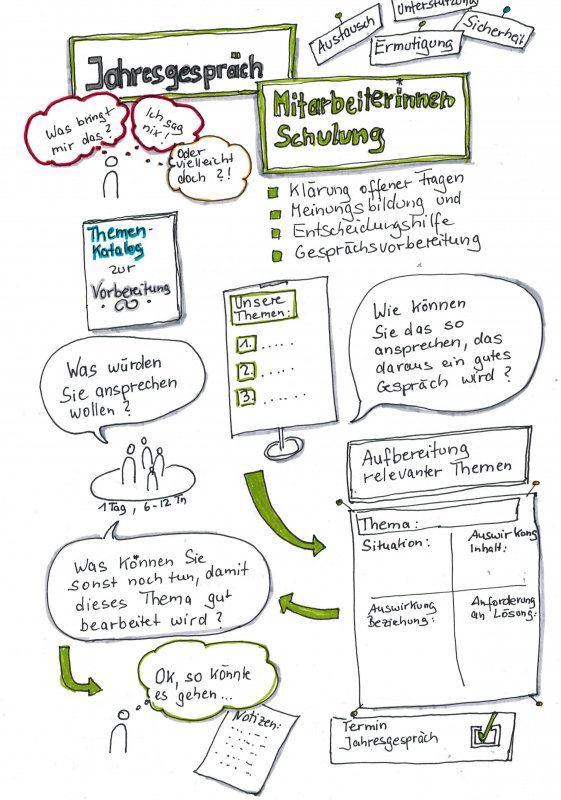 Austausch
Unterstützung
Ermutigung
Sicherheit
Jahresgespräch
Mitarbeiter*innen
Schulung
Was bringt
mir das?
Ich sag
nix!
Oder
vielleicht
doch ?!
Klärung offener Fragen
Meinungsbildung und
Entscheidungshilfe
Gesprächsvorbereitung
Themen-
Katalog
zur
Vorbereitung
Unsere
Themen:
1. .....
2. ......
3. .....
Wie können
Sie das so
ansprechen, das
daraus ein gutes
Gespräch wird?
Was würden
Sie ansprechen
wollen?
1 Tag, 6-12 Tn
Aufbereitung
relevanter Themen
Thema:
Situation:
Auswirkung
Inhalt:
Auswirkung
Beziehung:
Anforderung
an Lösung:
Was können Sie
sonst noch tun, damit
dieses Thema gut
bearbeitet wird?
Ok, so könnte
es gehen...
Notizen:
Termin
Jahresgespräch